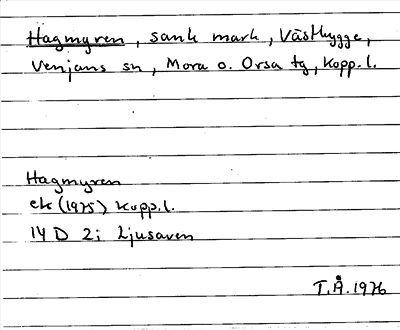 Hagmyren, sank mark, Västbygge,
Venjans sn, Mora o. Orsa tg, Kopp.l.
Hagmyren
ek (1975) Kopp.l.
14 D 2i Ljusaven
T.Å. 1976